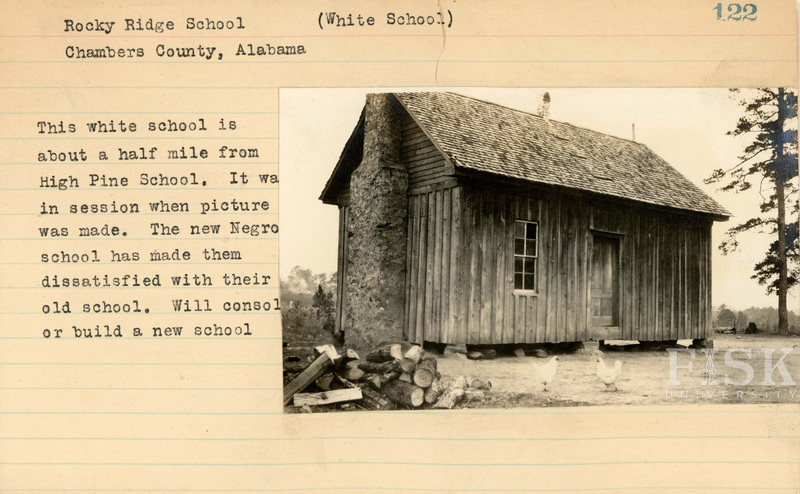 Rocky Ridge School (White School) 122
Chambers County, Alabama
This white school is
about a half mile from
High Pine School. It wa
in session when picture
was made. The new Negro
school has made them
dissatisfied with their
old school. Will consol
or build a new school
FISK
UNIVERSITY